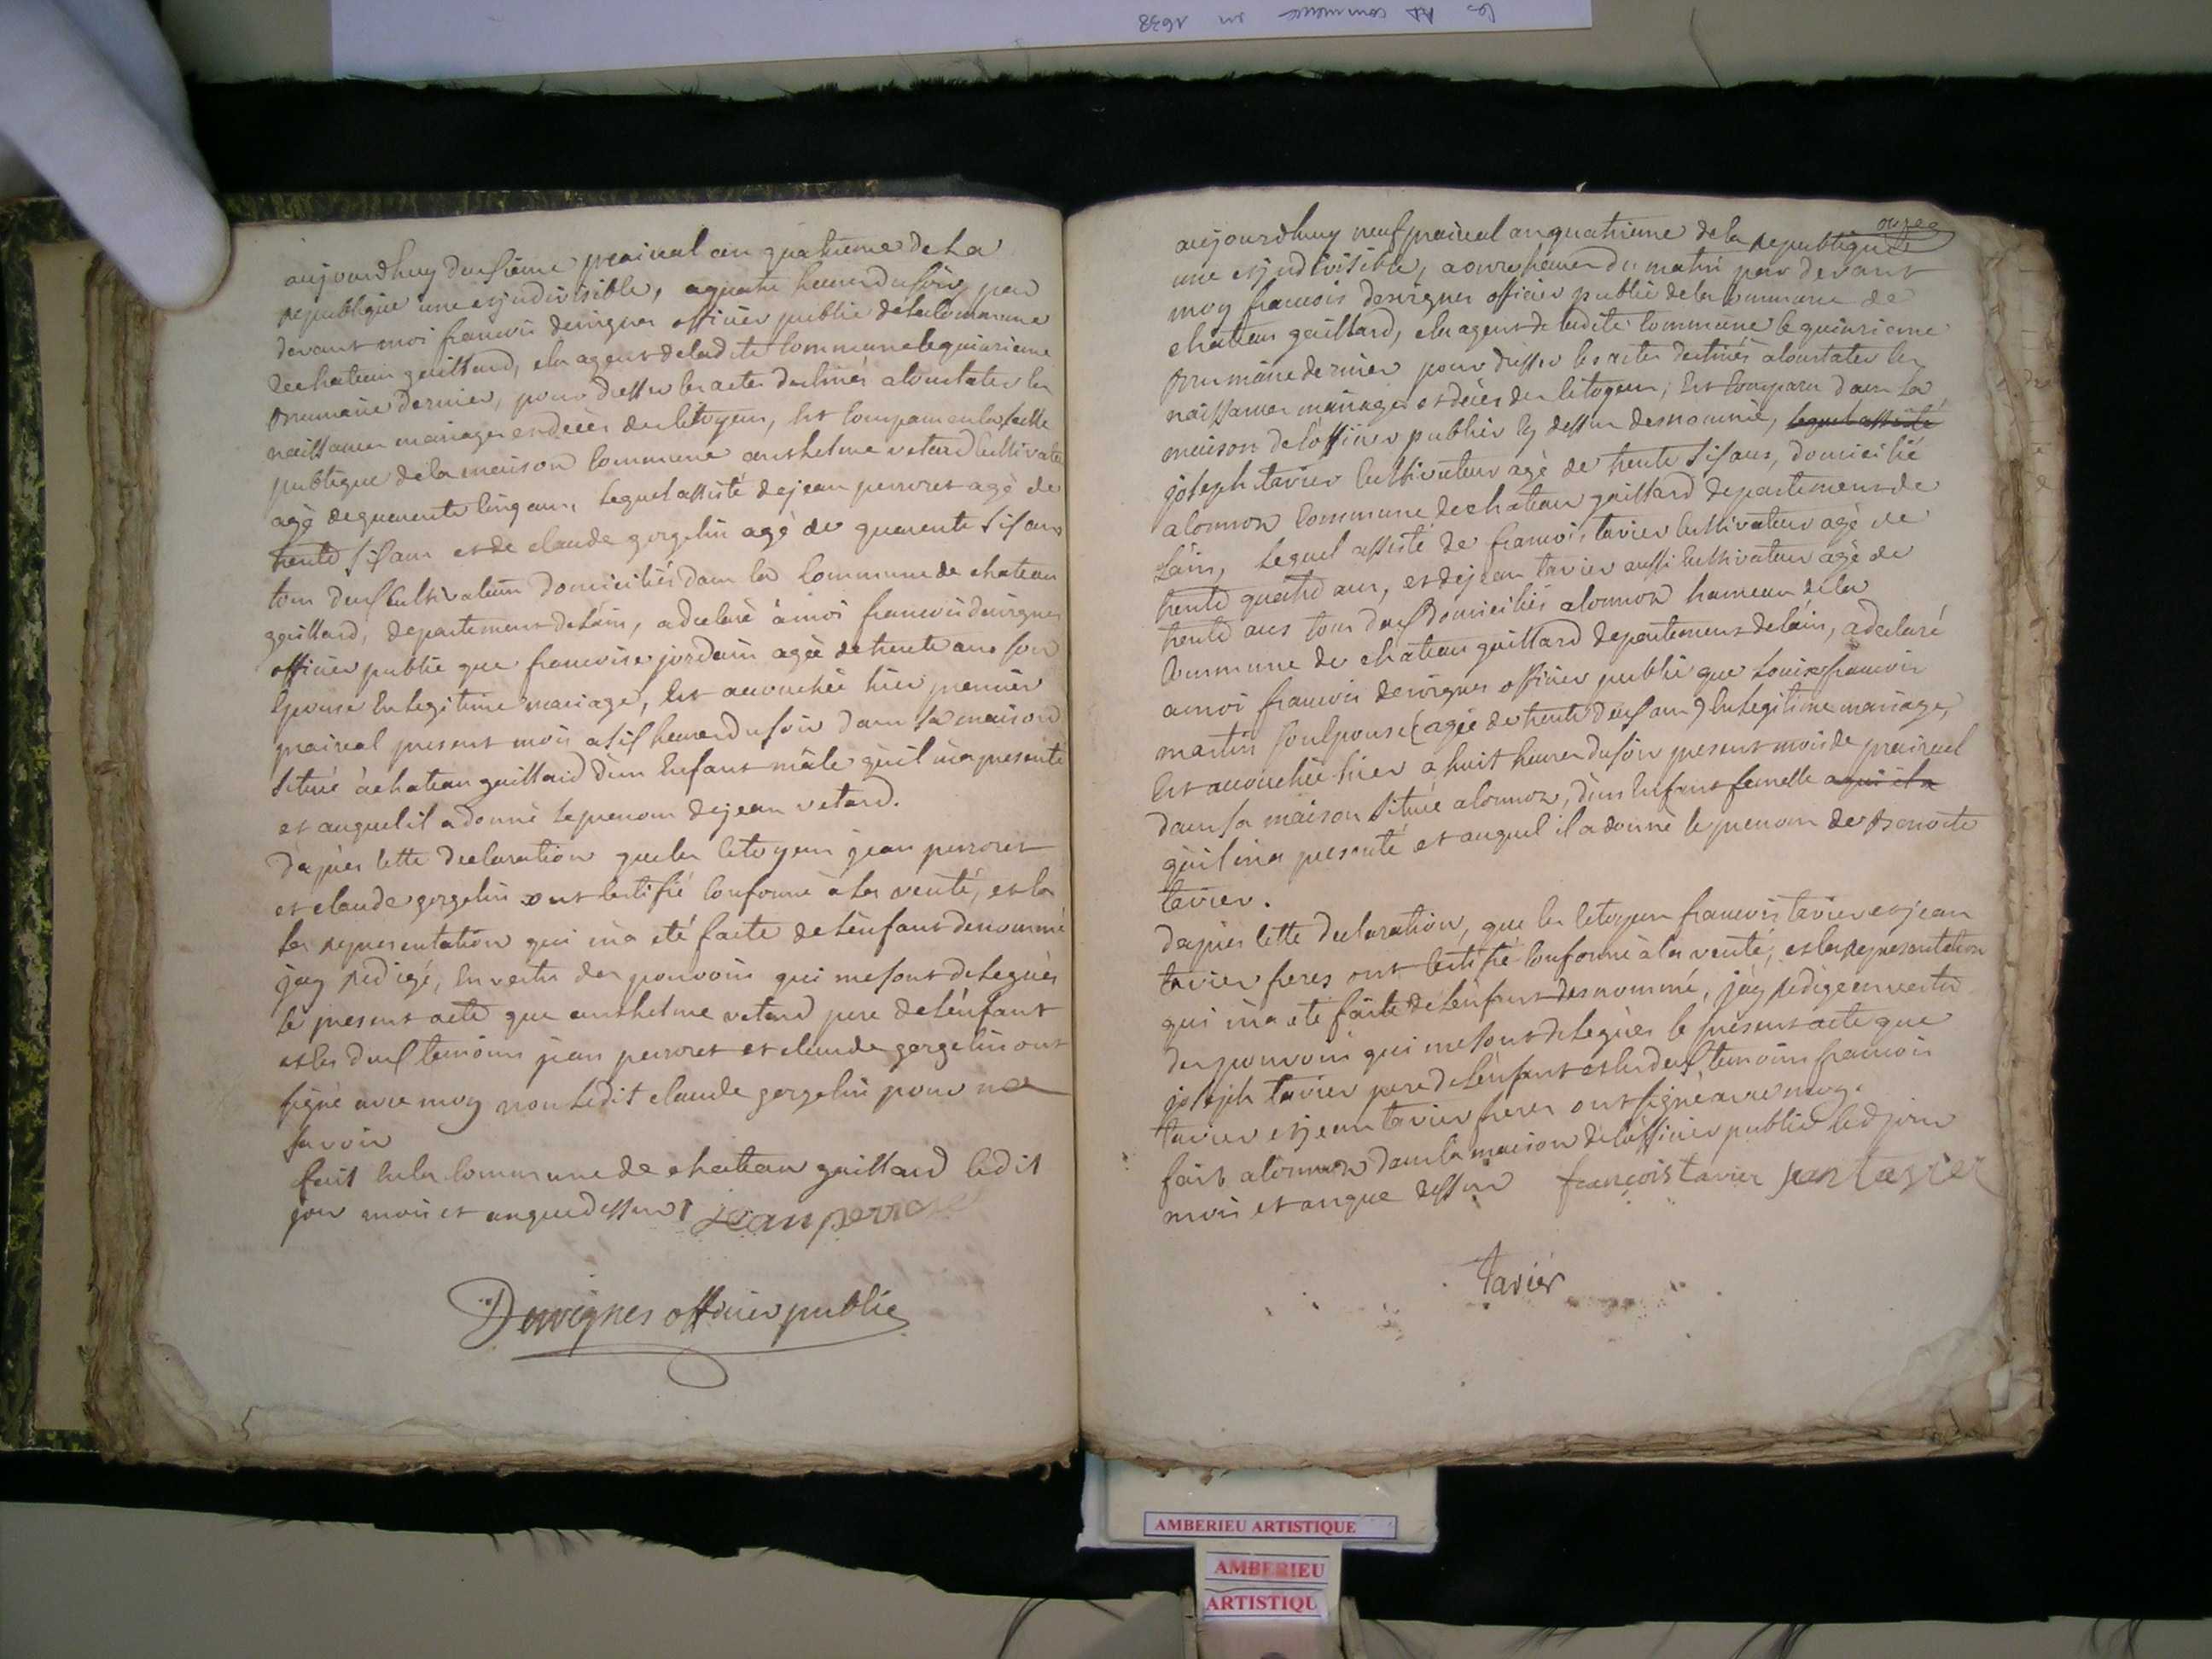 les commence en 1638
aujourdhuy deusieme prairial an quatrieme de La
republique une et jndivisible, a quatre heures du soir, par
devant moi francois desvignes officier public de la Commune
de chateau gaillard, elu agent de ladite Commune le quinzieme
Brumaire dernier, pour dresser les actes destinés a Constater les
naissances mariages et décès des Citoyens, Est Comparu en la salle
publique de la maison Commune anthelme vetard Cultivateur
agé de quarente Cinq ans, Lequel assisté de jean perroret agé de
trente sis ans et de claude gorgelin agé de quarente sis ans
tous deus Cultivateurs domiciliés dans la Commune de chateau
gaillard, departement de Láin, a declaré à moi francois desvignes
officier public que francoise jordain agée de trente ans son
Epouse En legitime mariage, Est accouchée hier premier
prairial present mois a sis heures du soir dans sa maison
situé à chateau gaillard d'un Enfant mâle qu'il m'a presenté
et auquel il a donné le prenom de jean vetard.
D'après Cette declaration que les Citoyens jean perroret
et claude gorgelin ont Certifié Conforme à la verité, et la
la representation qui m'a eté faite de L'enfant denommé
j'ay redigé, En vertu des pouvoirs qui me sont delegués
le present acte que anthelme vetard pere de L'énfant
et les deus temoins jean perroret et claude gorgelin ont
signé avec moy non Ledit claude gorgelin pour ne
savoir
fait En la Commune de chateau gaillard Ledit
jour mois et an que dessus jean perroret
Desvignes officier public
5
aujourdhuy neuf prairial an quatrieme de la republique
une et jndivisible, a onze heures du matin par devant
moy francois desvignes officier public de la Commune de
chateau gaillard, elu agent de ladite Commune le quinzieme
Brumaire dernier pour dresser les actes destinés a Constater les
naissances mariages et décès des Citoyens, Est Comparu dans La
maison de l'officier public Cy dessus desnommé, lequel assisté
joseph tavier Cultivateur agé de trente sis ans, domicilié
a lonnoz Commune de chateau gaillard departement de
Láin, Lequel assisté de francois tavier Cultivateur agé de
trente quatre ans, et de jean tavier aussi Cultivateur agé de
trente ans tous deus domiciliés a lonnoz hameau de la
Commune de chateau gaillard departement de láin, a declaré
a moi francois desvignes officier public que Louise francois
martin son Epouse (agée de trente deus ans) En legitime mariage,
Est accouchée hier a huit heures du soir present mois de prairial
dans sa maison située a lonnoz, d'un Enfant femelle a qui il a
qu'il m'a presenté et auquel il a donné le prenom de Benoite
tavier.
d'après Cette declaration, que les Citoyens francois tavier et jean
tavier freres ont Certifié Conforme à la verité, et la representation
qui m'a eté faite de L'énfant desnommé, j'ay redigé en vertu
des pouvoirs qui me sont delegués le présent acte que
joseph tavier pere de L'énfant et les deus temoins francois
tavier et jean tavier freres ont signé avec moy.
fait a lonnoz dans la maison de l'officier public led jour
mois et an que dessus francois tavier jean tavier
tavier
AMBERIEU ARTISTIQUE
AMBERIEU
ARTISTIQU